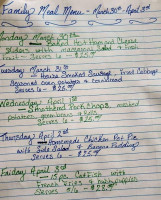 Family Meal Menu - March 30th - April 3rd
Monday March 30th
Baked Hot Ham and Cheese
Sliders with macaroni salad & fresh
fruit - Serves 6 - $26
Tuesday March 31st
House Smoked Sausage, Fried Cabbage
Serves 6 - $26
Wednesday April 1st
Smothered Pork Chops, mashed
potatoes, green beans & rolls
Serves 6 - $26
Thursday April 2nd
Homemade Chicken Pot Pie
with Side Salad & Banana Pudding
Serves 6 - $26
Friday April 3rd
Catfish with
French Fries & hushpuppies
Serves 6 - $26